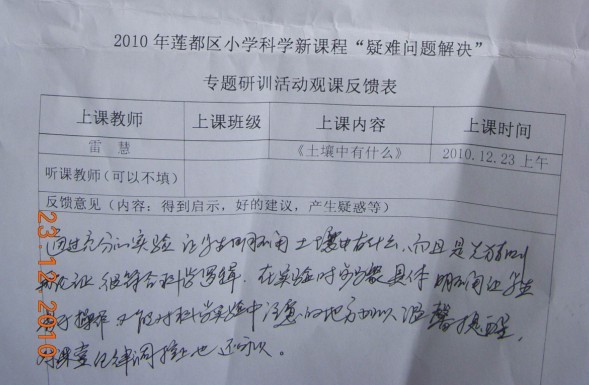 2010年莲都区小学科学新课程“疑难问题解决”
专题研训活动观课反馈表
上课教师 上课班级 上课内容 上课时间
雷 慧 《土壤中有什么》 2010.12.23 上午
听课教师(可以不填)
反馈意见(内容:得到启示,好的建议,产生疑惑等)
通过充分的实验 让学生明确 土壤中有什么,而且是先
论证 很符合科学逻辑,在实验时步骤具体 明确 让学生
操作 又能对科学实验中注意的地方加以温馨提醒,
对课堂纪律调控也还可以。
23.12.2010